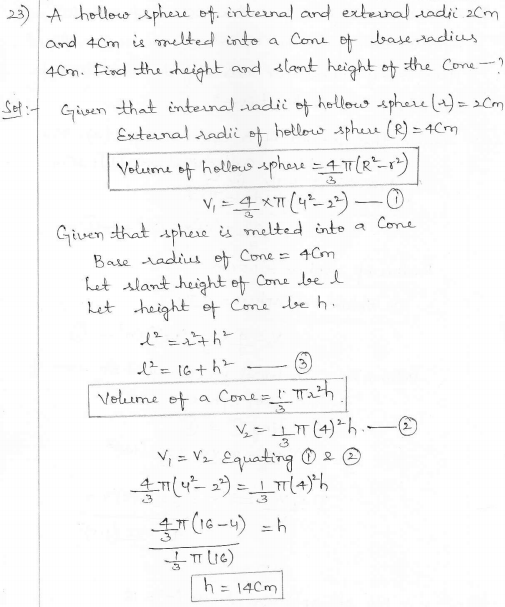 23) A hollow sphere of internal and external radii 2Cm
and 4Cm is melted into a Cone of base radius
4Cm. Find the height and slant height of the Cone —?
Sol:- Given that internal radii of hollow sphere (r) = 2Cm
External radii of hollow sphere (R) = 4Cm
Volume of hollow sphere = 4/3 π(R²-r²)
V₁ = 4/3 × π (4²-2²) — ①
Given that sphere is melted into a Cone
Base radius of Cone = 4Cm
Let slant height of Cone be l
Let height of Cone be h.
l² = r²+h²
l² = 16 + h² — ③
Volume of a Cone = 1/3 πr²h
V₂ = 1/3 π (4)²h. — ②
V₁ = V₂ Equating ① & ②
4/3 π(4²-2²) = 1/3 π(4)²h
4/3 π (16-4) = h
1/3 π (16)
h = 14Cm